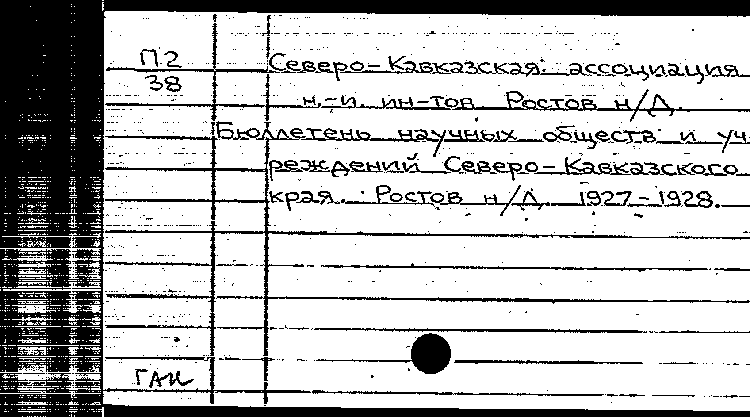 П2 Северо-Кавказская ассоциация
38 н.-и. ин-тов. Ростов н/Д.
Бюллетень научных обществ и уч-
реждений Северо-Кавказского
края. Ростов н/Д. 1927-1928.
ГАК